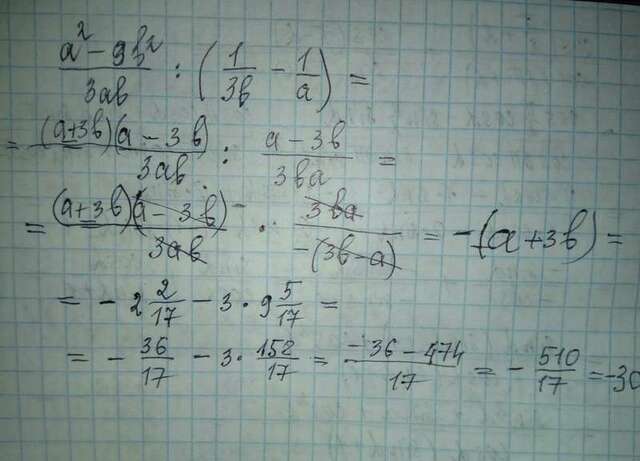 (a² - 9b²)/(3ab) : (1/(3b) - 1/a) =
= (a+3b)(a-3b)/(3ab) : (a-3b)/(3ba) =
= (a+3b)(a-3b)⁻/(3ab) · 3ba/(-(3b-a)) = -(a+3b) =
= - 2 2/17 - 3 · 9 5/17 =
= - 36/17 - 3 · 158/17 = (-36-474)/17 = - 510/17 = -30